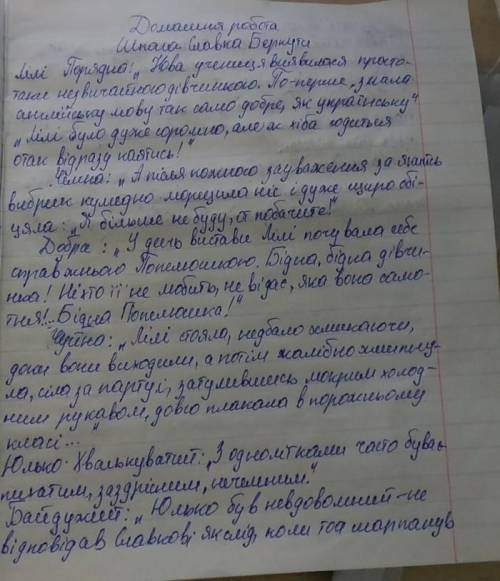 Домашня робота
Шпага Славка Беркути
Лілі Порядна: „Нова учениця виявилося просто-
таки незвичастною дівчинкою. По-перше, знала
англійську мову так само добре, як українську"
„Лілі було дуже соромно, але ж хіба годиться
отак відразу каятись!"
Чемна: „А після кожного зауваження за якийсь
вибрик кумедно морщила ніс і дуже щиро обі-
цяла: „Я більше не буду, от побачите!"
Добра: „У день вистави Лілі почувала себе
справжньою Попелюшкою. Бідна, бідна дівчи-
нка! Ніхто її не любить, не відає, яка вона само-
тня!.. Бідна Попелюшка!"
„Лілі стояла, недбало хмикаючи,
доки вони виходили, а потім жалібно схлипну-
ла, сіла за парту і, затулившись мокрим холод-
ним рукавом, довго плакала в порожньому
класі...
Юлько Хвалькуватий: „З однолітками часто бував
пихатим, заздрісним, нечемним."
Байдужий: „Юлько був невдоволений - не
відповідав Славкові як слід, коли той шарпанув